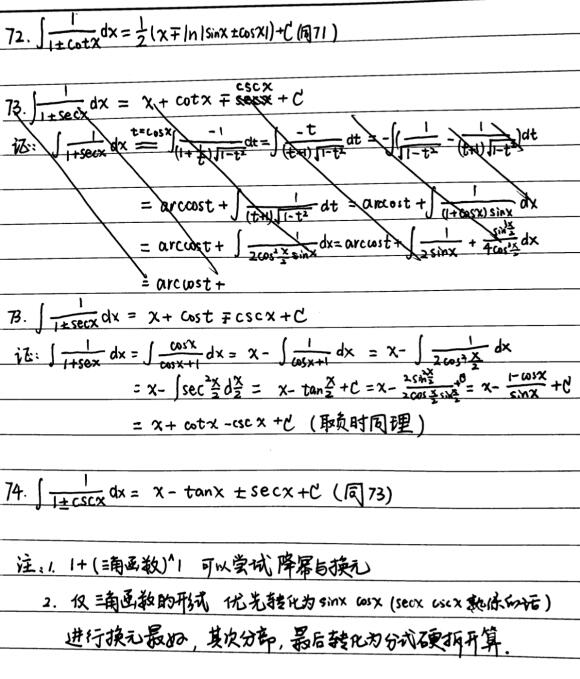 72. ∫ 1/(1±cotx) dx = 1/2 (x∓ln|sinx±cosx|)+C (同71)
73. ∫ 1/(1±secx) dx = x + cotx ∓ cscx + C
证: ∫ 1/(1+secx) dx =(t=cosx) ∫ -1/((1+1/t)√(1-t²)) dt = ∫ -t/((t+1)√(1-t²)) dt = -∫(1/√(1-t²) - 1/((t+1)√(1-t²)))dt
= arccost + ∫ 1/((t+1)√(1-t²)) dt = arccost + ∫ 1/((1+cosx)sinx) dx
= arccost + ∫ 1/(2cos²x/2 sinx) dx = arccost + ∫ 1/(2sinx) + /(4cos³x/2) dx
= arccost +
73. ∫ 1/(1±secx) dx = x + cost ∓ cscx + C
证: ∫ 1/(1+sex) dx = ∫ cosx/(cosx+1) dx = x - ∫ 1/(cosx+1) dx = x - ∫ 1/(2cos²x/2) dx
= x - ∫sec²x/2 dx/2 = x - tanx/2 + C = x - 2sin²x/2/(2cosx/2 sinx/2) + C = x - (1-cosx)/sinx + C
= x + cotx - cscx + C (取负时同理)
74. ∫ 1/(1±cscx) dx = x - tanx ± secx + C (同73)
注: 1. 1+(三角函数)^1 可以尝试降幂与换元
2. 仅三角函数的形式 优先转化为sinx cosx (secx cscx 熟练的话)
进行换元最好, 其次分部, 最后转化为分式硬拆开算.